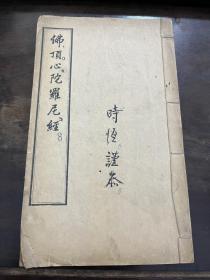 佛頂心陀羅尼經
時恆謹恭